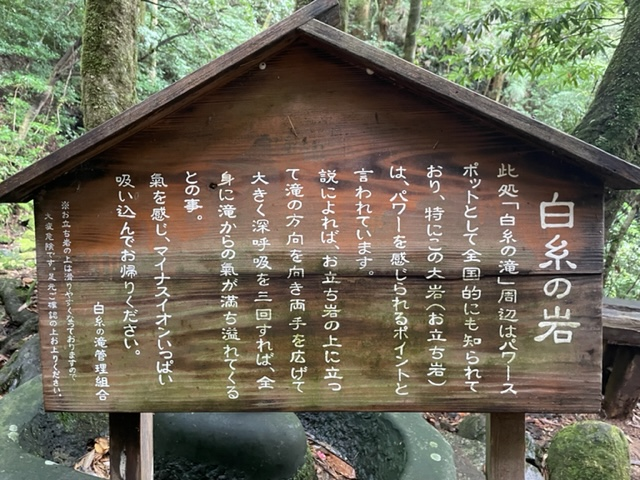 白糸の岩
此処「白糸の滝」周辺はパワース
ポットとして全国的にも知られて
おり、特にこの大岩（お立ち岩）
は、パワーを感じられるポイントと
言われています。
説によれば、お立ち岩の上に立っ
て滝の方向を向き両手を広げて
大きく深呼吸を三回すれば、全
身に滝からの氣が満ち溢れてくる
との事。
氣を感じ、マイナスイオンいっぱい
吸い込んでお帰りください。
白糸の滝管理組合
※お立ち岩の上は滑りやすくなっておりますので、
大変危険です。足元ご確認の上お上りください。